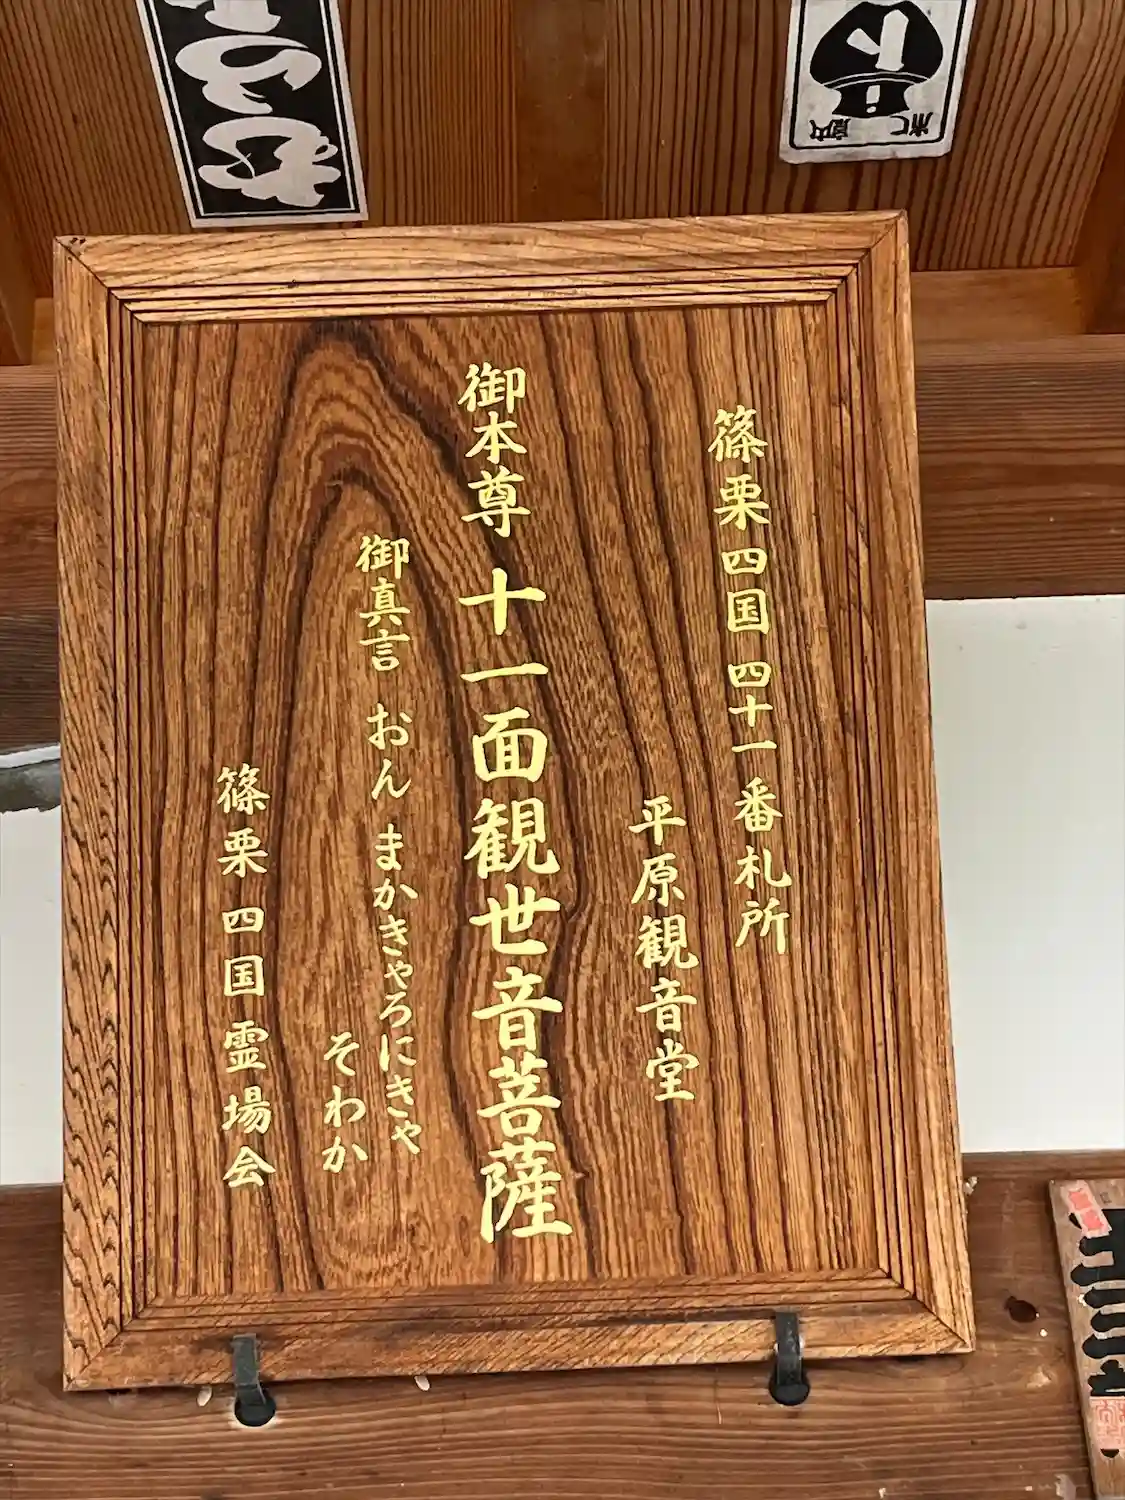 篠栗四国 四十一番札所
平原観音堂
御本尊 十一面観世音菩薩
御真言 おん まかきゃろにきゃ
そわか
篠栗四国霊場会